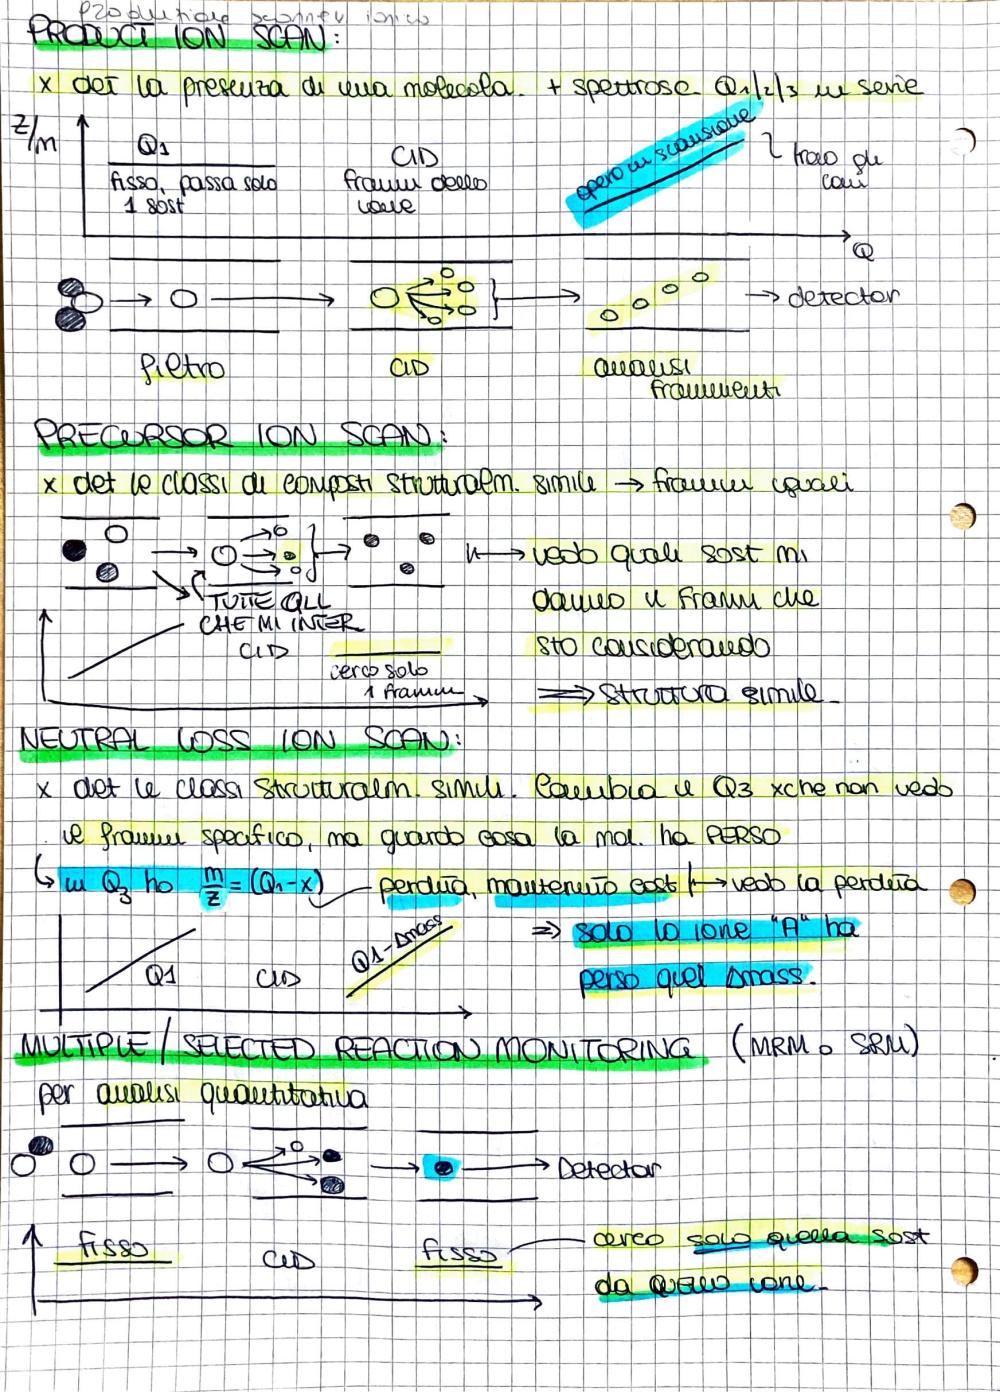 Produzione scanner ionico
PRODUCT ION SCAN:
x det la presenza di una molecola. + spettrosc. Q1/2/3 in serie
Z/m
Q1
fisso, passa solo
1 sost
CID
framm dello
ione
opero in scansione
trovo gli
ioni
Q
detector
filtro
CID
analisi
frammenti
PRECURSOR ION SCAN:
x det le classi di composti strutturalm. simile → framm uguali
→ vedo quali sost mi
danno il framm che
sto considerando
⇒ struttura simile.
TUTTE QLL
CHE MI INTER
CID
cerco solo
1 framm
NEUTRAL LOSS ION SCAN:
x det le classi strutturalm. simili. Cambia il Q3 xche non vedo
il framm specifico, ma guardo cosa la mol. ha PERSO
↳ in Q3 ho m/z = (Q1-x) perdita, mantenuto cost ↦ vedo la perdita
⇒ solo lo ione "A" ha
perso quel Δmass.
Q1
CID
Q1-Δmass
MULTIPLE/SELECTED REACTION MONITORING (MRM o SRM)
per analisi quantitativa
Detector
fisso
CID
fisso
cerco solo quella sost
da quello ione.